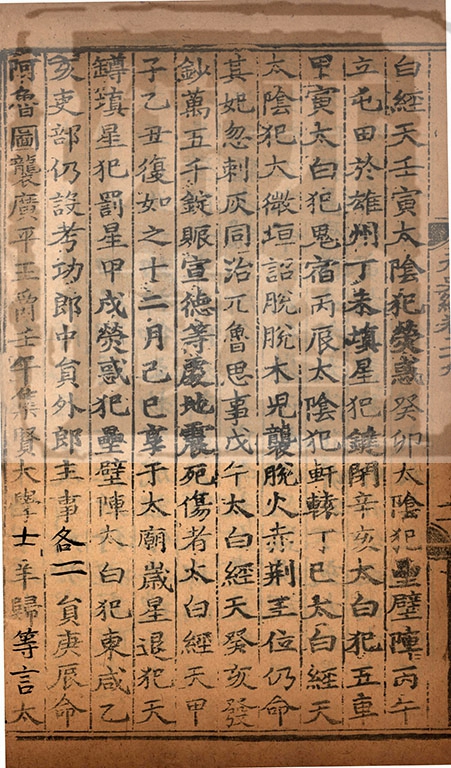 白經天壬寅太陰犯熒惑癸卯太陰犯壘壁陣丙午
立屯田於雄州丁未填星犯鍵閉辛亥太白犯五車
甲寅太白犯鬼宿丙辰太陰犯軒轅丁巳太白經天
太陰犯大微垣詔脫脫木兒襲脫火赤荆王位仍命
其妃忽剌灰同治兀魯思事戊午太白經天癸亥發
鈔萬五千錠賑宣德等處地震死傷者太白經天甲
子乙丑復如之十二月己巳享于太廟歲星退犯天
罇填星犯罰星甲戌熒惑犯壘壁陣太白犯東咸乙
亥吏部仍設考功郎中員外郎主事各二員庚辰命
阿魯圖襲廣平王爵壬午集賢大學士羊歸等言太